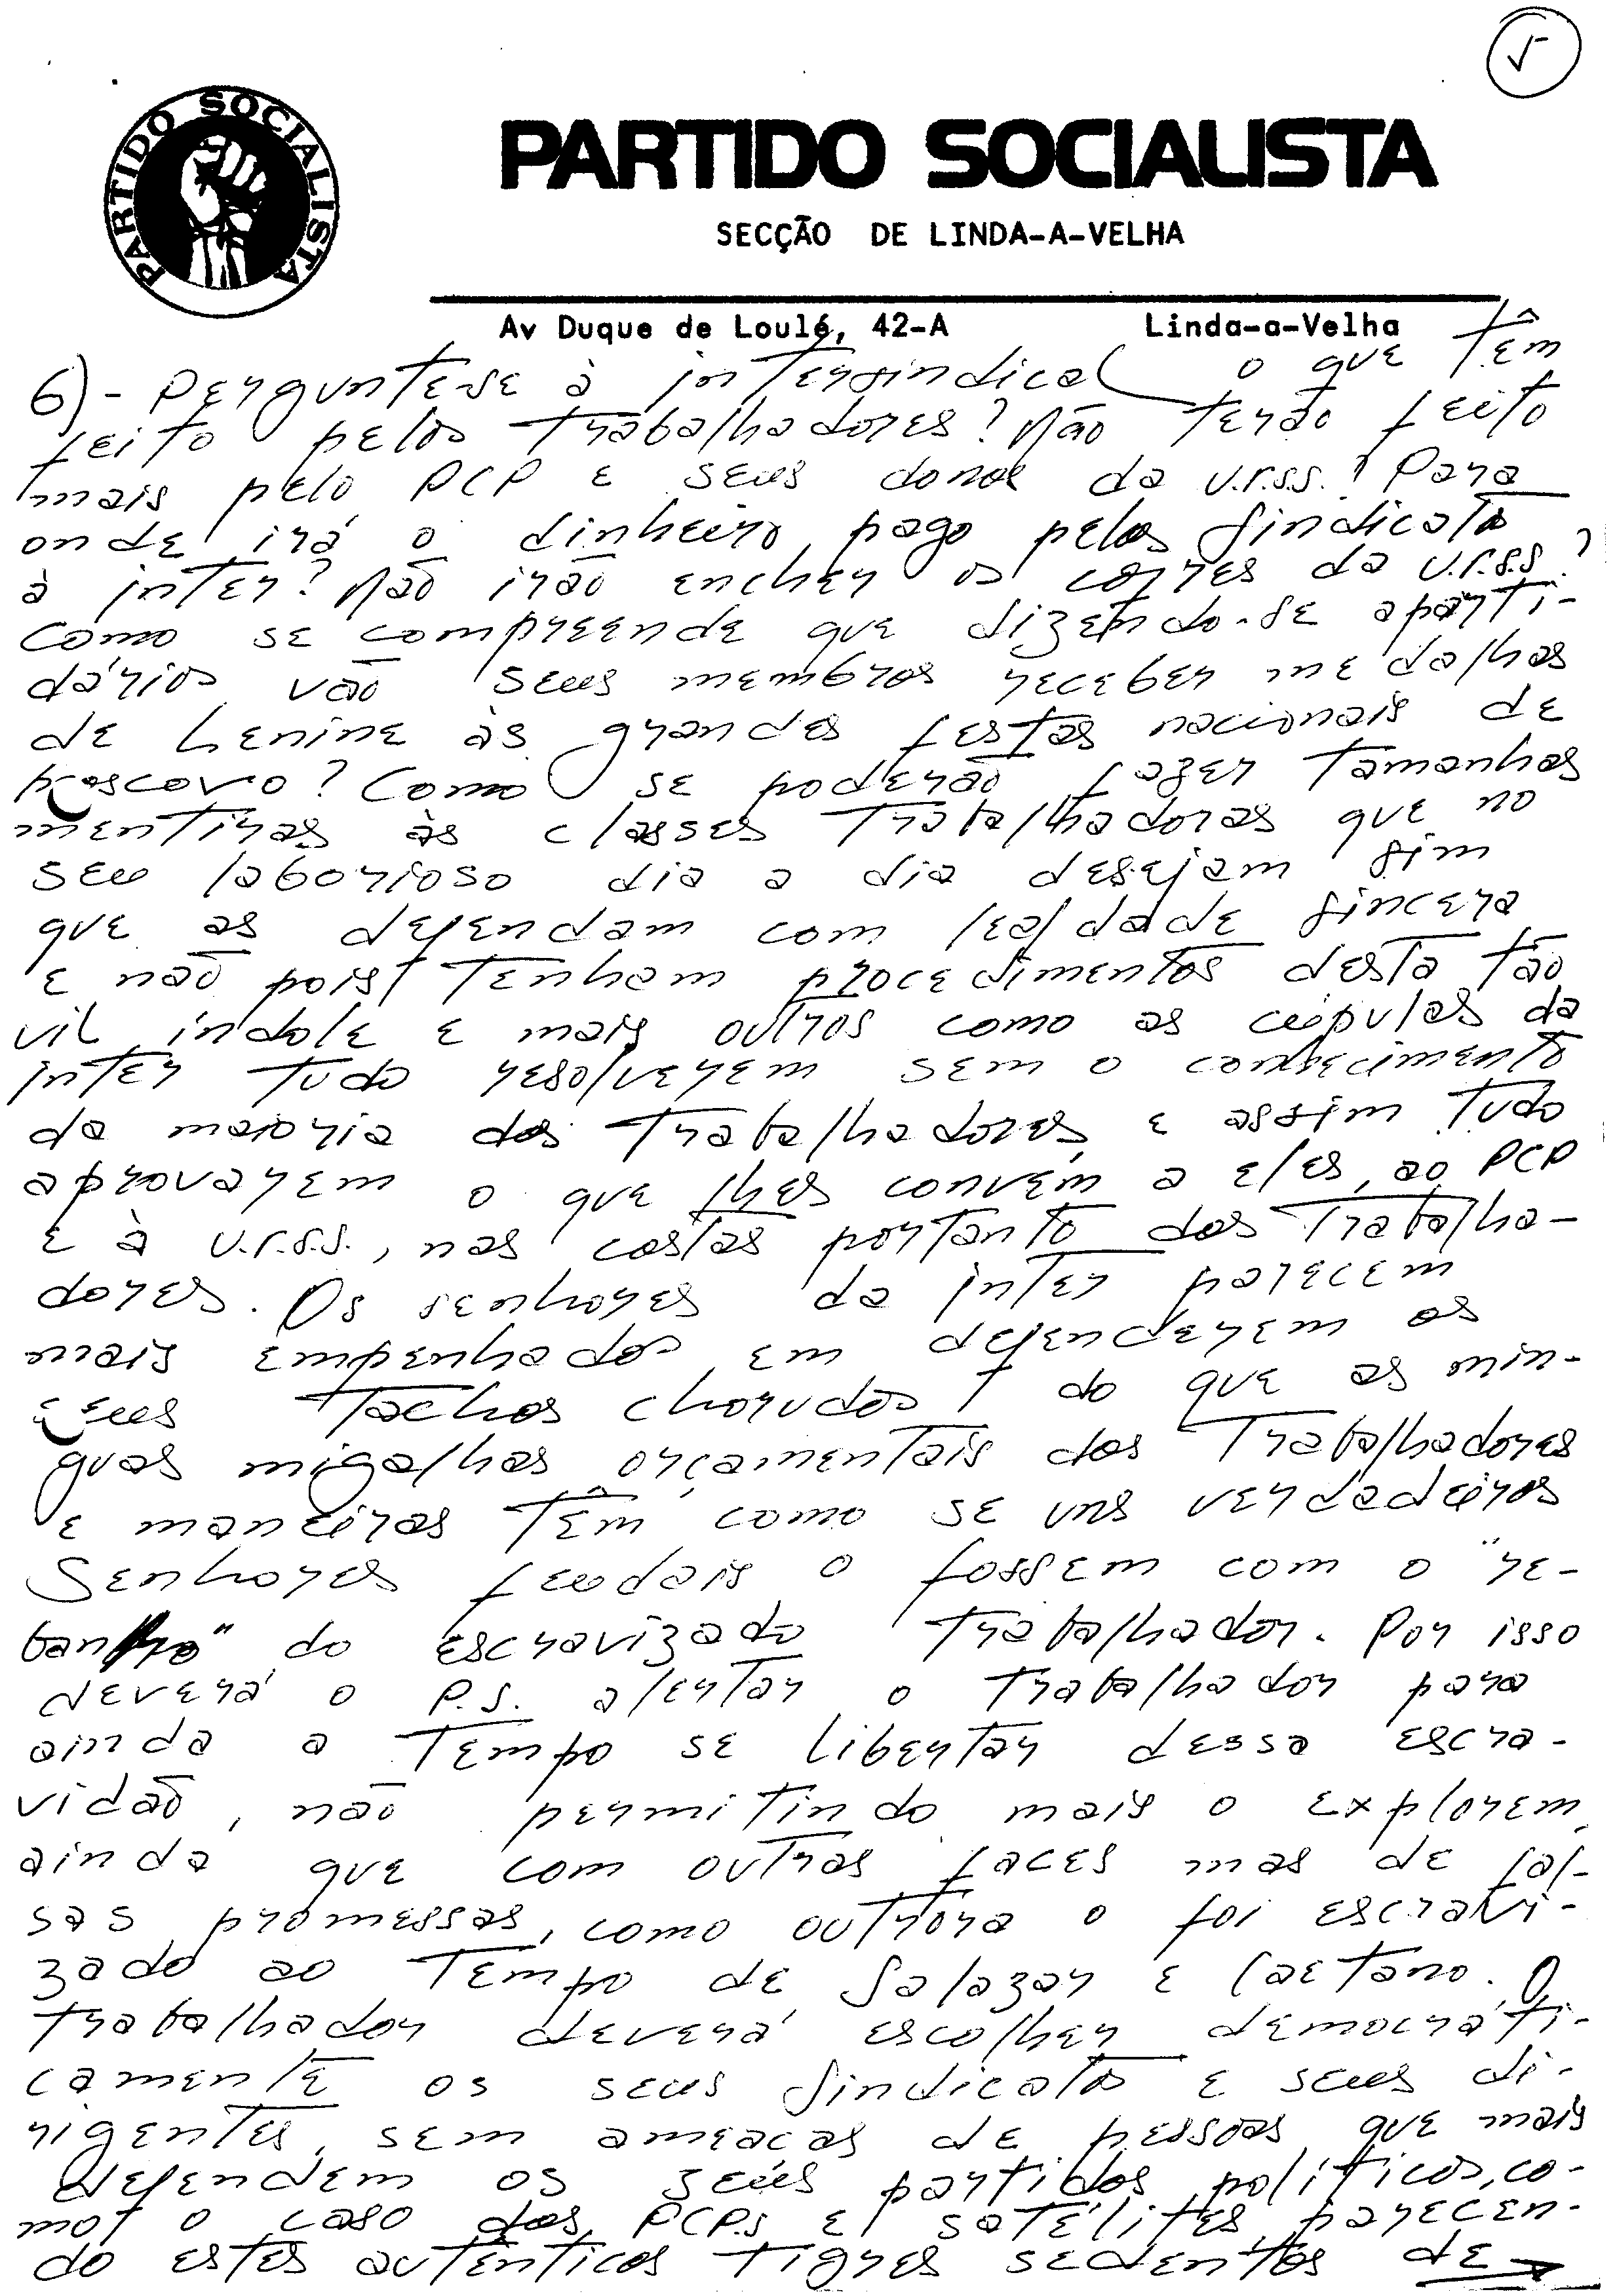 5
PARTIDO SOCIALISTA
PARTIDO SOCIALISTA
SECÇÃO DE LINDA-A-VELHA
Av Duque de Loulé, 42-A Linda-a-Velha
6) - Pergunte-se à intersindical o que têm
feito pelos trabalhadores? Não terão feito
mais pelo PCP e seus donos da U.r.s.s.? Para
onde irá o dinheiro pago pelos Sindicatos
à inter? Não irão encher os cofres da U.r.s.s?
Como se compreende que dizendo-se aparti-
dários vão seus membros receber medalhas
de Lenine às grandes festas nacionais de
Moscovo? Como se poderão fazer tamanhas
mentiras às classes trabalhadoras que no
seu laborioso dia a dia desejam sim
que as defendam com lealdade sincera
e não pois tenham procedimentos desta tão
vil índole e mais outros como as cúpulas da
inter tudo resolverem sem o conhecimento
da maioria dos trabalhadores, e assim tudo
aprovarem o que lhes convém a eles, ao PCP
e à U.r.s.s., nas costas portanto dos trabalha-
dores. Os senhores da inter parecem
mais empenhados em defenderem os
seus tachos chorudos, do que as mín-
guas migalhas orçamentais dos trabalhadores
e maneiras têm como se uns verdadeiros
Senhores feudais o fossem com o "re-
banho" do escravizado trabalhador. Por isso
deverá o P.S. alertar o trabalhador para
ainda a tempo se libertar dessa escra-
vidão, não permitindo mais o explorem,
ainda que com outras faces mas de fal-
sas promessas, como outrora o foi escravi-
zado ao tempo de Salazar e Caetano. O
trabalhador deverá escolher democráti-
camente os seus Sindicatos e seus di-
rigentes, sem ameaças de pessoas que mais
defendem os seus partidos políticos, co-
mo o caso dos PCP.s e satélites, parecen-
do estes autênticos tigres sedentos de →